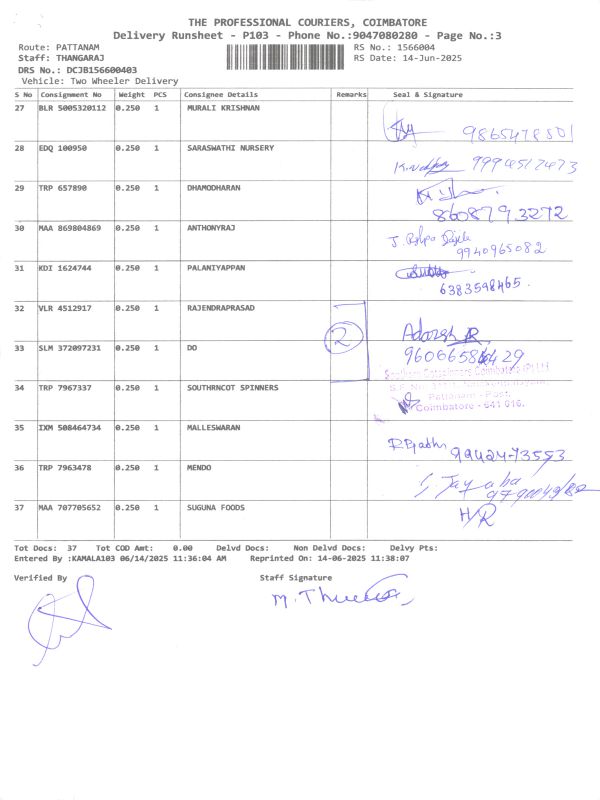 THE PROFESSIONAL COURIERS, COIMBATORE
Delivery Runsheet - P103 - Phone No.:9047080280 - Page No.:3
Route: PATTANAM RS No.: 1566004
Staff: THANGARAJ RS Date: 14-Jun-2025
DRS No.: DCJB156600403
Vehicle: Two Wheeler Delivery
S No Consignment No Weight PCS Consignee Details Remarks Seal & Signature
27 BLR 5005320112 0.250 1 MURALI KRISHNAN
9865478501
28 EDQ 100950 0.250 1 SARASWATHI NURSERY
9994517473
29 TRP 657890 0.250 1 DHAMODHARAN
8608793272
30 MAA 869804869 0.250 1 ANTHONYRAJ
9940965082
31 KDI 1624744 0.250 1 PALANIYAPPAN
6383598465.
32 VLR 4512917 0.250 1 RAJENDRAPRASAD
2 Adarsh R
33 SLM 372097231 0.250 1 DO
34 TRP 7967337 0.250 1 SOUTHRNCOT SPINNERS
Pattanam - Post,
Coimbatore - 641 016.
35 IXM 508464734 0.250 1 MALLESWARAN
99424-73553
36 TRP 7963478 0.250 1 MENDO
37 MAA 707705652 0.250 1 SUGUNA FOODS
H/R
Tot Docs: 37 Tot COD Amt: 0.00 Delvd Docs: Non Delvd Docs: Delvy Pts:
Entered By :KAMALA103 06/14/2025 11:36:04 AM Reprinted On: 14-06-2025 11:38:07
Verified By Staff Signature